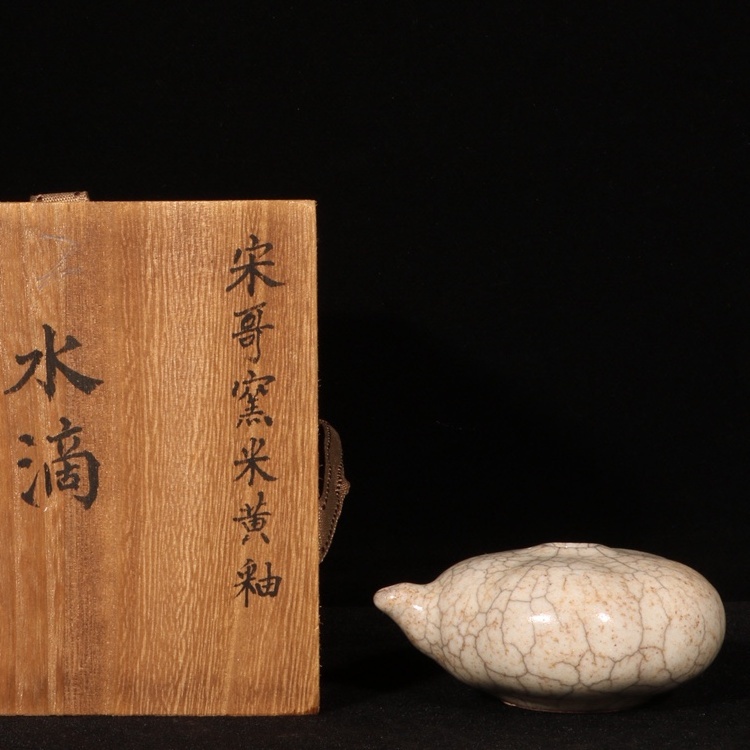 宋哥窯米黄釉
水滴